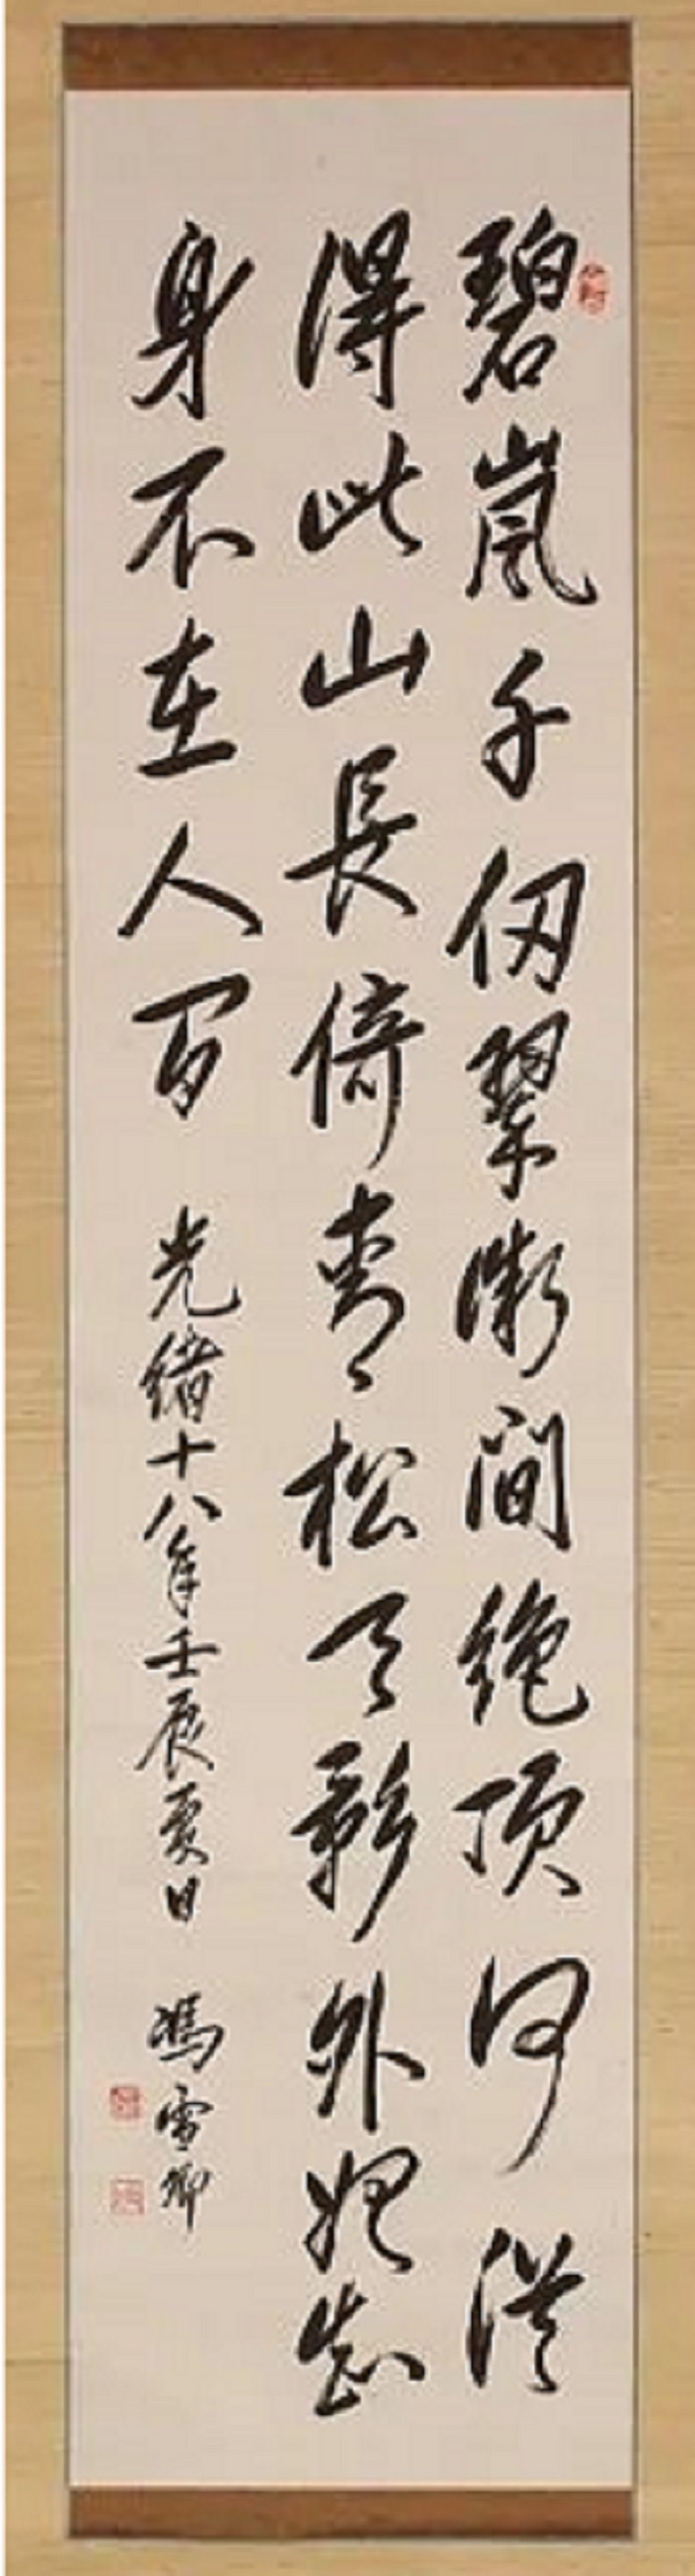 碧嵐千仞翠微間絶頂何從
得此山長倚青松天影外始知
身不在人間 光緒十八年壬辰夏日 馮雪卿